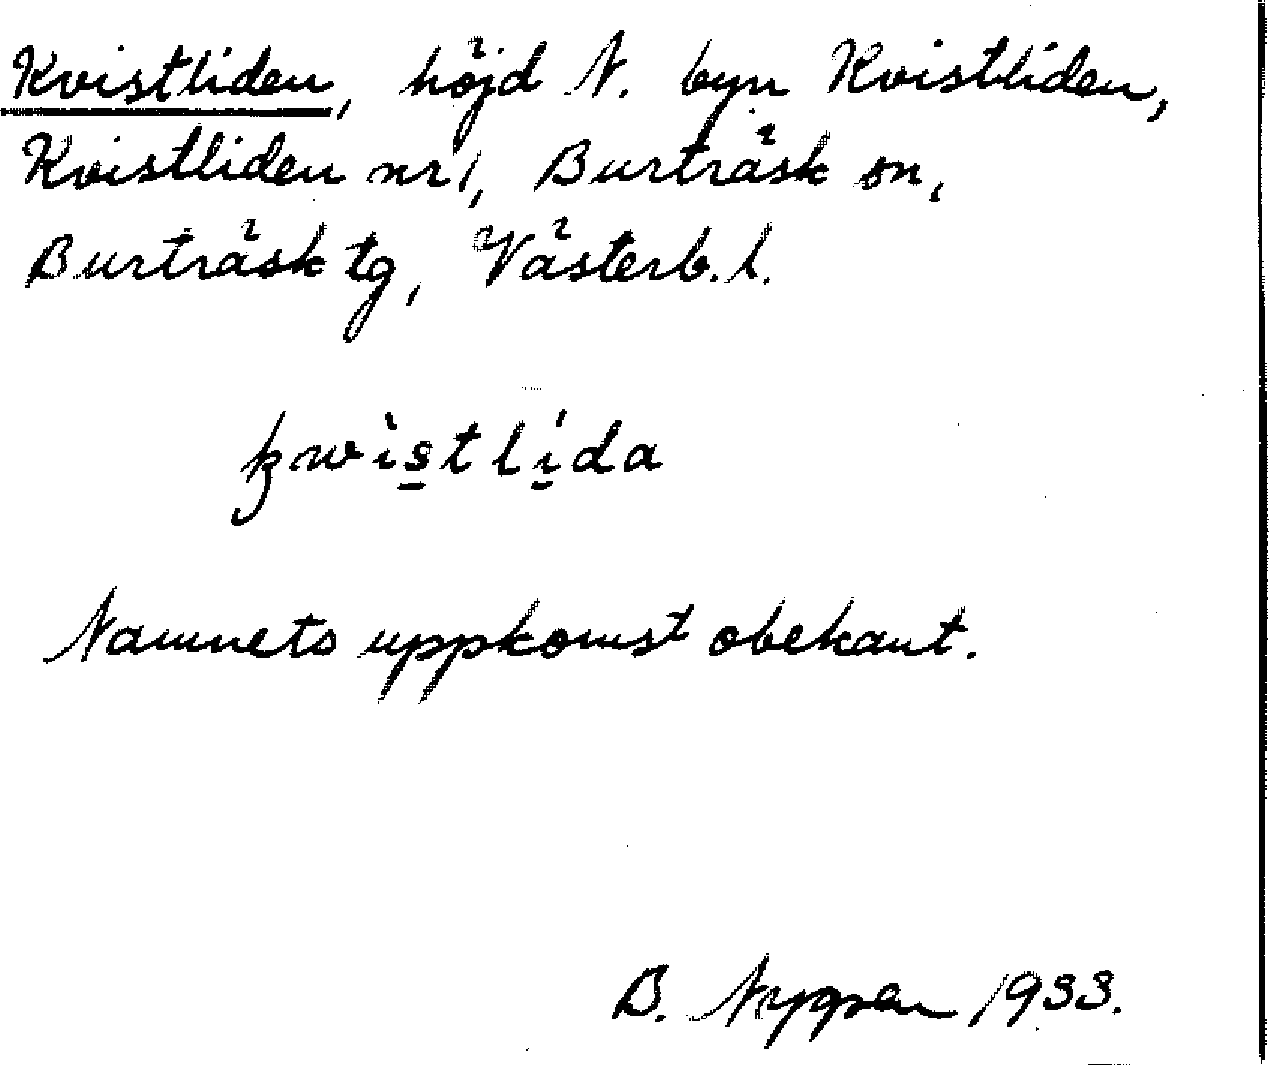 Kvistliden, höjd N. byn Kvistliden,
Kvistliden nr 1, Burträsk sn,
Burträsk tg, Västerb. l.
kwìstlída
Namnets uppkomst obekant.
B. Nygren 1933.